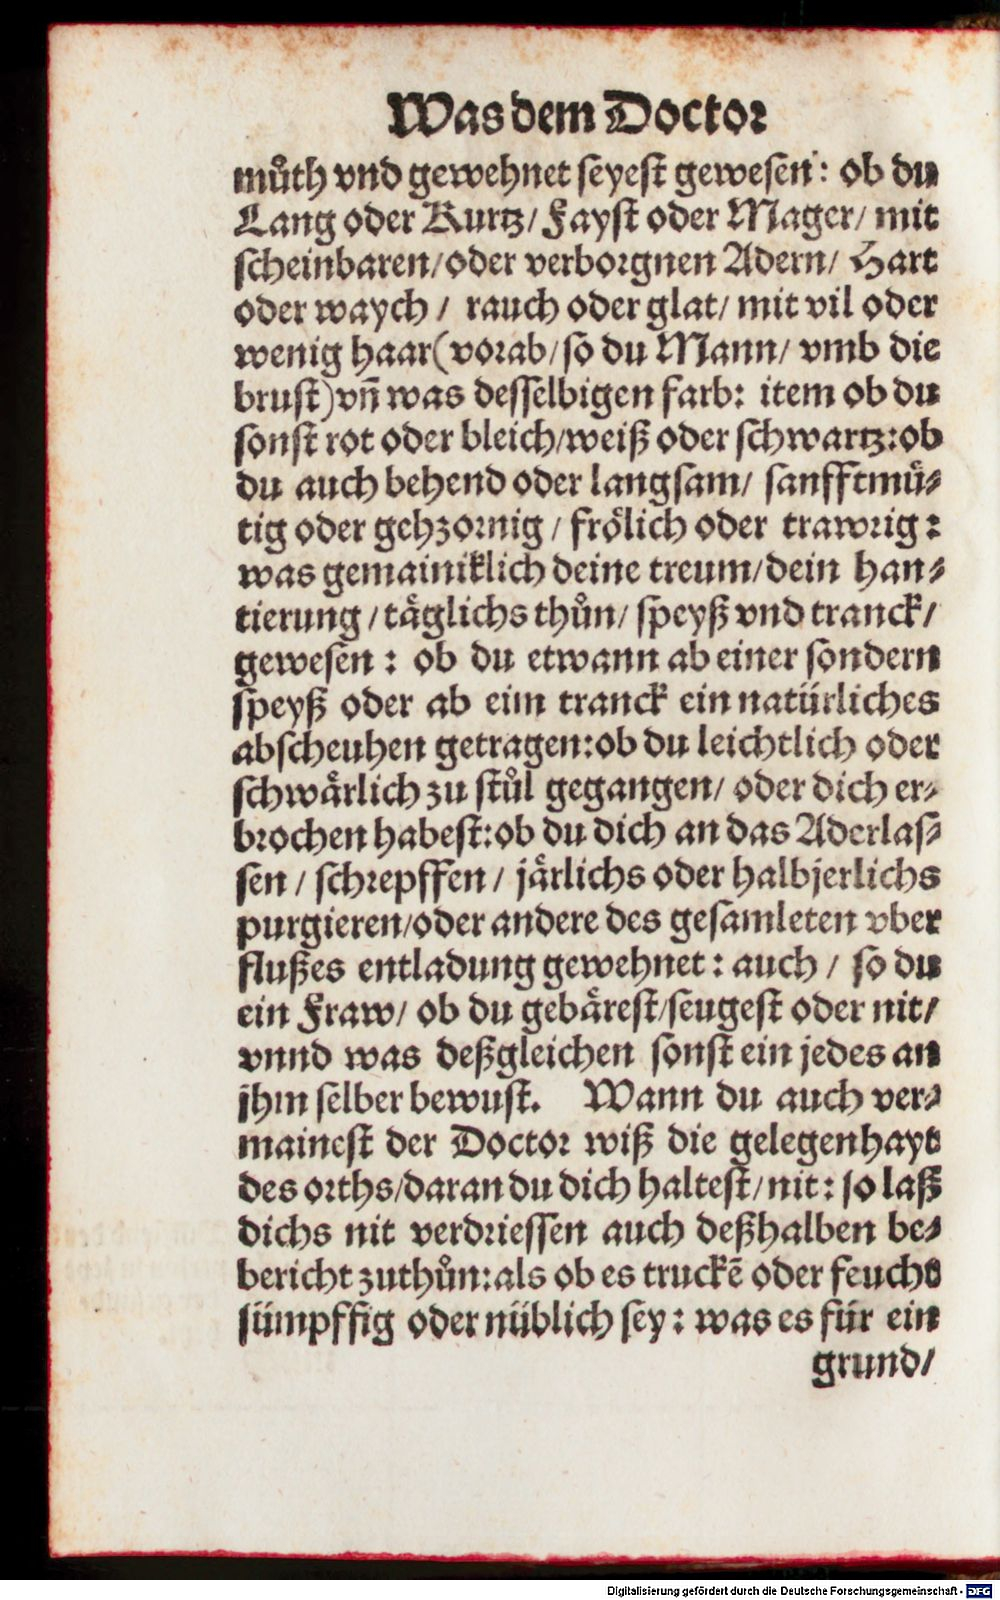 Was dem Doctor
můth vnd gewehnet seyest gewesen: ob du
Lang oder Kurtz/ Fayst oder Mager/ mit
scheinbaren/oder verborgnen Adern/ Hart
oder waych / rauch oder glat/ mit vil oder
wenig haar(vorab/so du Mann/ vmb die
brust)vñ was desselbigen farb: item ob du
sonst rot oder bleich/weiß oder schwartz:ob
du auch behend oder langsam/ sanfftmuͤ-
tig oder gehzornig / froͤlich oder trawrig:
was gemainiklich deine treum/dein han-
tierung /taͤglichs thůn/ speyß vnd tranck/
gewesen : ob du etwann ab einer sondern
speyß oder ab eim tranck ein natürliches
abscheuhen getragen:ob du leichtlich oder
schwaͤrlich zu stůl gegangen/ oder dich er-
brochen habest:ob du dich an das Aderlas-
sen / schrepffen / jaͤrlichs oder halbjerlichs
purgieren/oder andere des gesamleten vber
flußes entladung gewehnet : auch / so du
ein Fraw/ ob du gebaͤrest/seugest oder nit/
vnnd was deßgleichen sonst ein jedes an
jhm selber bewust. Wann du auch ver-
mainest der Doctor wiß die gelegenhayt
des orths/daran du dich haltest/nit: so laß
dichs nit verdriessen auch deßhalben be-
bericht zuthůn:als ob es truckē oder feucht
sümpffig oder nüblich sey : was es für ein
grund/
Digitalisierung gefördert durch die Deutsche Forschungsgemeinschaft - DFG